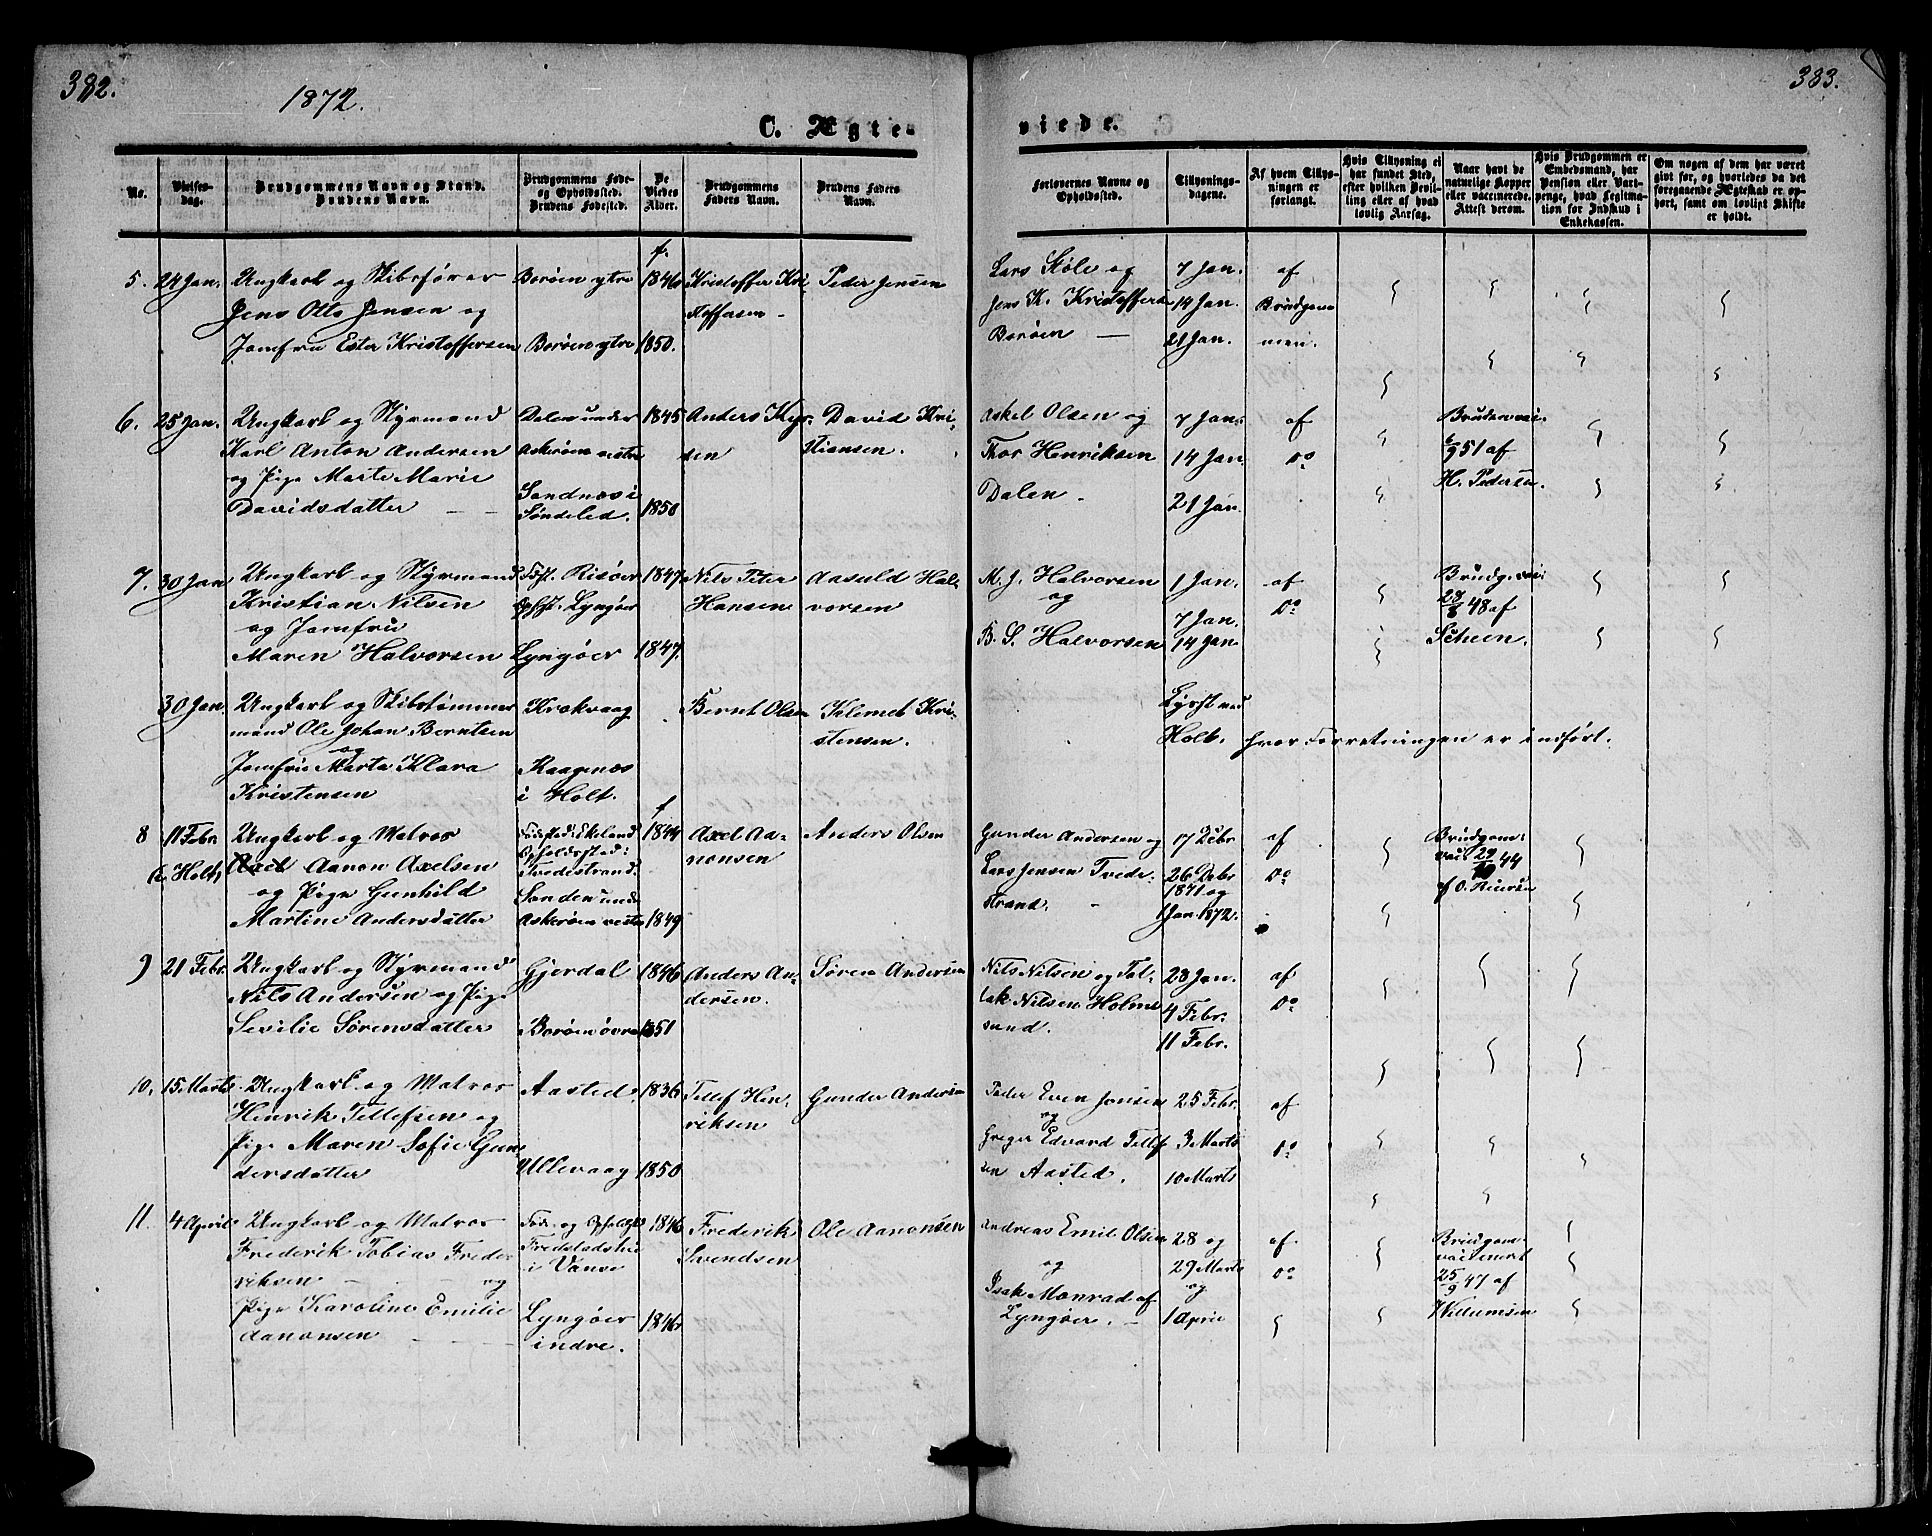 382.
1872.
383.
C. Ægte
viede.
No.
Vielses-
dag.
Brudgommens Navn og Stand.
Brudens Navn.
Brudgommens Føde-
og Opholdssted.
Brudens Fødested.
De
Viedes
Alder.
Brudgommens
Faders Navn.
Brudens Faders
Navn.
Forlovernes Navne og
Opholdssted.
Tillysnings-
dagene.
Af hvem Tillys-
ningen er
forlangt.
Hvis Tillysning ei
har fundet Sted,
efter hvilken Bevil-
ling eller af hvad
lovlig Aarsag.
Naar havt de
naturlige Kopper
eller vaccinerede.
Attest derom.
Hvis Brudgommen er
Embedsmand, har
Pension eller Vart-
penge, hvad Legitima-
tion for Indskud i
Enkekassen.
Om nogen af dem har været
givt før, og hvorledes da det
foregaaende Ægteskab er op-
hørt, samt om lovligt Skifte
er holdt.
5. 24 Jan.
Ungkarl og Skibsfører
Jens Otto Jensen og
Jomfru Ester Kristoffersen
Borøen ytre
Borøen ytre
f.
1846
1850.
Kristoffer Kri-
stoffersen
Peder Jensen
Lars Støle og
Jens K. Kristoffersen
Borøen
7 Jan.
14 Jan.
21 Jan.
af
Brudgom-
men.
6. 25 Jan.
Ungkarl og Styrmand
Karl Anton Andersen
og Pige Marte Marie
Davidsdatter
Dalen under
Askerøen vestre
Sandnes i
Søndeled.
1845
1850
Anders
sen
David Kri-
stiansen.
Askel Olsen og
Thor Henriksen
Dalen.
7 Jan.
14 Jan.
21 Jan.
af
Do
Bruden vac.
6/9 51 af
H. Pedersen.
7. 30 Jan
Ungkarl og Styrmand
Kristian Nilsen
og Jomfru
Maren Halvorsen
Fødst. Risøer
Ophst. Lyngøer
Lyngøer
1847
1847.
Nils Peter
Hansen
Aasuld Hal-
vorsen
M. J. Halvorsen
og
B. S. Halvorsen
1 Jan.
7 Jan.
14 Jan
af
Do
Brudg. vac.
28/8 48 af
Scheen.
30 Jan.
Ungkarl og Skibstømmer-
mand Ole Johan Berntsen
og
Jomfru Marta Klara
Kristensen
Krokvaag
Kaagenes
i Holt.
Bernt Olsen
Klemet Kri-
stensen.
Lyst ved
Holt, hvor Forretningen er indført.
8 11 Febr.
(i Holt)
Ungkarl og Matros
Aanon Axelsen
og Pige Gunhild
Martine Andersdatter
Fødested: Ekeland
Opholdssted:
Tvedestrand.
Sanden under
Askerøen vestre
f
1844
1849
Axel Aa-
nonsen
Anders Olsen
Gunder Andersen og
Lars Jensen Tvede-
strand.
17 Debr
26 Debr
1871 og
1 Jan. 1872.
af
Do
Brudgom:
vac. 29/10 44
af O.
9 21 Febr.
Ungkarl og Styrmand
Nils Andersen og Pige
Sevilie Sørensdatter
Gjerdal
Borøen øvre
1846
1851
Anders An-
dersen.
Søren Andersen
Nils Nilsen og Tal-
lak Nilsen Holme
sund.
28 Jan.
4 Febr.
11 Febr.
af
Do
10. 15 Marts.
Ungkarl og Matros
Henrik Tellefsen og
Pige Maren Sofie Gun-
dersdatter
Aasted.
Ullevaag
1836
1850
Tellef Hen-
riksen
Gunder Andersen
Peder Even Jensen
og
Greger Edvard Tellef-
sen Aasted.
25 Febr.
3 Marts
10 Marts
af
Do
11. 4 April
Ungkarl og Matros
Frederik Tobias Frede-
riksen og
Pige Karoline Emilie
Aanonsen
Føde- og Opholdst.
i Vanse
Lyngøer
indre.
1846
1846
Frederik
Svendsen
Ole Aanonsen
Andreas Emil Olsen
og
Isak Monrad af
Lyngøer.
28 og
29 Marts
og
1 April
af
Do
Brudgom.
vaccineret
25/9 47 af
Willumsen